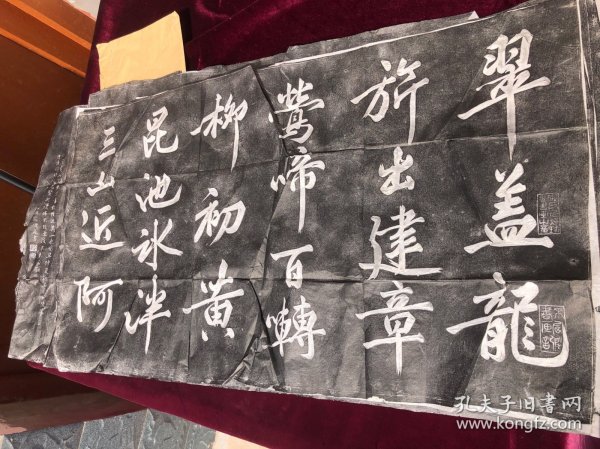 翠盖龍
旂出建章
鶯啼百囀
柳初黄
昆池冰泮
三山近阿
孔夫子旧書网
www.kongfz.com